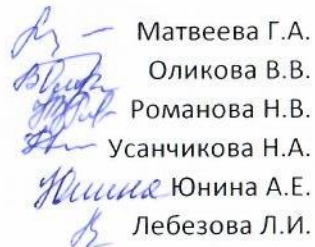 Матвеева Г.А.
Оликова В.В.
Романова Н.В.
Усанчикова Н.А.
Юнина А.Е.
Лебезова Л.И.